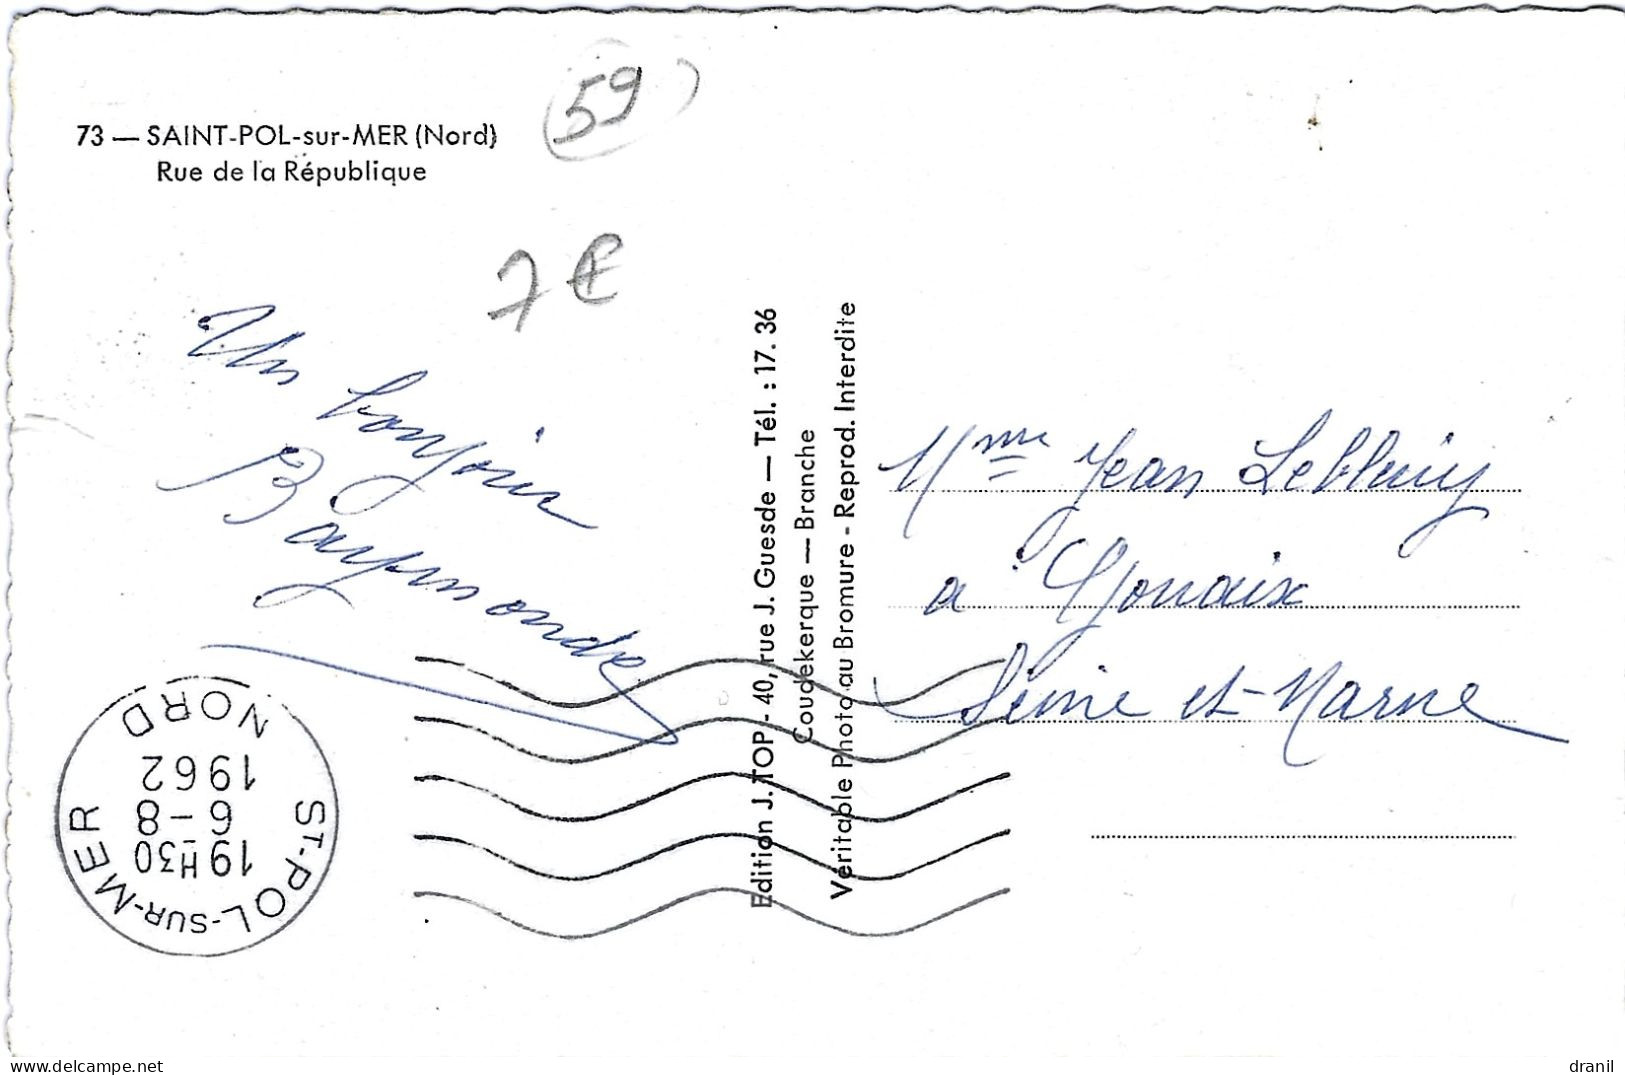 73 — SAINT-POL-sur-MER (Nord)
Rue de la République
59
7 €
Un bonjour
Raymonde
Edition J. TOP - 40, rue J. Guesde — Tél. : 17. 36
Coudekerque — Branche
Veritable Photo au Bromure - Reprod. Interdite
Mme Jean
a Gouaix
Seine et-Marne
ST-POL-SUR-MER
19H30
6-8
1962
NORD
www.delcampe.net
dranil